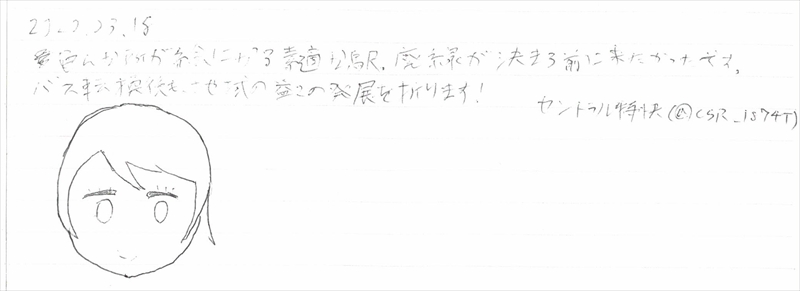 2023.03.18
色んな所が気になる素適な駅。廃線が決まる前に来たかったです。
バス転換後も、地域の益々の発展を祈ります!
セントラル特快(@CSR_1574T)